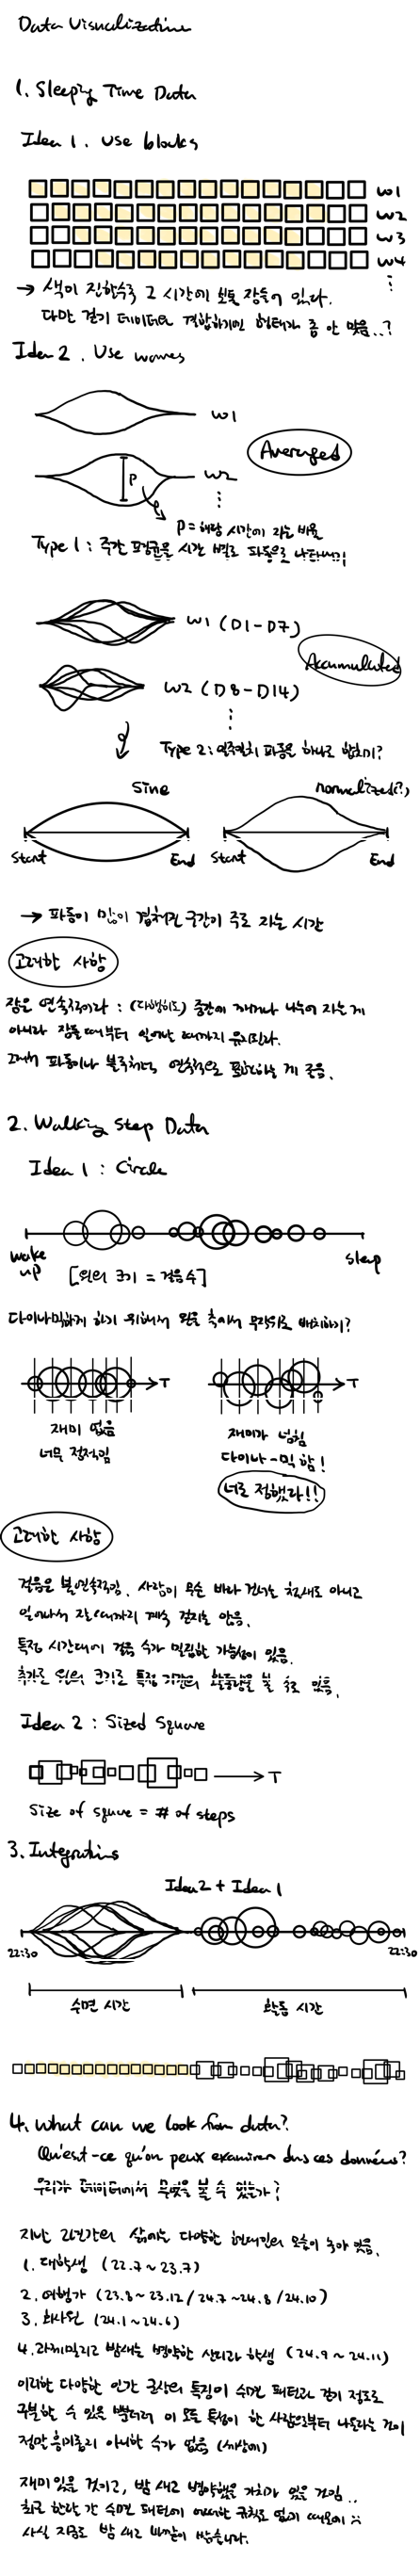 Data Visualization
1. Sleeping Time Data
Idea 1. Use blocks
W1
W2
W3
W4
⋮
→ 색이 진할수록 그 시간에 보통 잠들어 있다.
다만 걷기 데이터와 결합하기엔 형태가 좀 안 맞음..?
Idea 2. Use waves
W1
Averaged
P
W2
⋮
P = 해당 시간에 자는 비율
Type 1 : 주간 평균을 시간 별로 파동으로 나타내기
W1 (D1-D7)
Accumulated
W2 (D8-D14)
⋮
Type 2 : 일주일치 파동을 하나로 합치기?
Sine
normalized(?)
Start
End
Start
End
→ 파동이 많이 겹쳐진 구간이 주로 자는 시간
고려한 사항
잠은 연속적이라 : (다행히도) 중간에 깨거나 나누어 자는게
아니라 잠들때부터 일어날 때까지 유지된다.
파동이나 블록처럼 연속적으로 표현하는 게 좋음.
2. Walking Step Data
Idea 1 : Circle
wake
up
sleep
[원의 크기 = 걸음수]
다이나믹하게 하기 위해서 원을 축에서 무작위로 배치하기?
T
T
재미 없음
너무 정적임
재미가 넘침
다이나-믹 함!
너로 정했다!!
고려한 사항
걸음은 불연속적임. 사람이 무슨 바라 건너는 철새도 아니고
일어나서 잘때까지 계속 걷지는 않음.
특정 시간대에 걸음 수가 밀집할 가능성이 있음.
추가로 원의 크기로 특정 기간의 활동량을 볼 수도 있음.
Idea 2 : Sized Square
T
Size of square = # of steps
3. Integrations
Idea2 + Idea1
22:30
22:30
수면 시간
활동 시간
4. What can we look from data?
Qu'est-ce qu'on peux examiner dans ces données?
우리가 데이터에서 무엇을 볼 수 있는가?
지난 2년간의 삶에는 다양한 현대인의 모습이 녹아 있음.
1. 대학생 (22.7~23.7)
2. 여행가 (23.8~23.12 / 24.7~24.8 / 24.10)
3. 회사원 (24.1~24.6)
4. 과제밀리고 밤새는 병약한 산디과 학생 (24.9~24.11)
이러한 다양한 인간 군상의 특징이 수면 패턴과 걷기 정도로
구분할 수 있을 뿐더러 이 모든 특징이 한 사람으로부터 나온다는 것이
정말 흥미롭지 아니할 수가 없음 (세상에)
재미있을 것이고, 밤 새고 병약했을 가치가 있을 것임..
최근 한달 간 수면 패턴에 어떠한 규칙도 없기 때문에 :(
사실 지금도 밤 새고 바깥이 밝습니다.